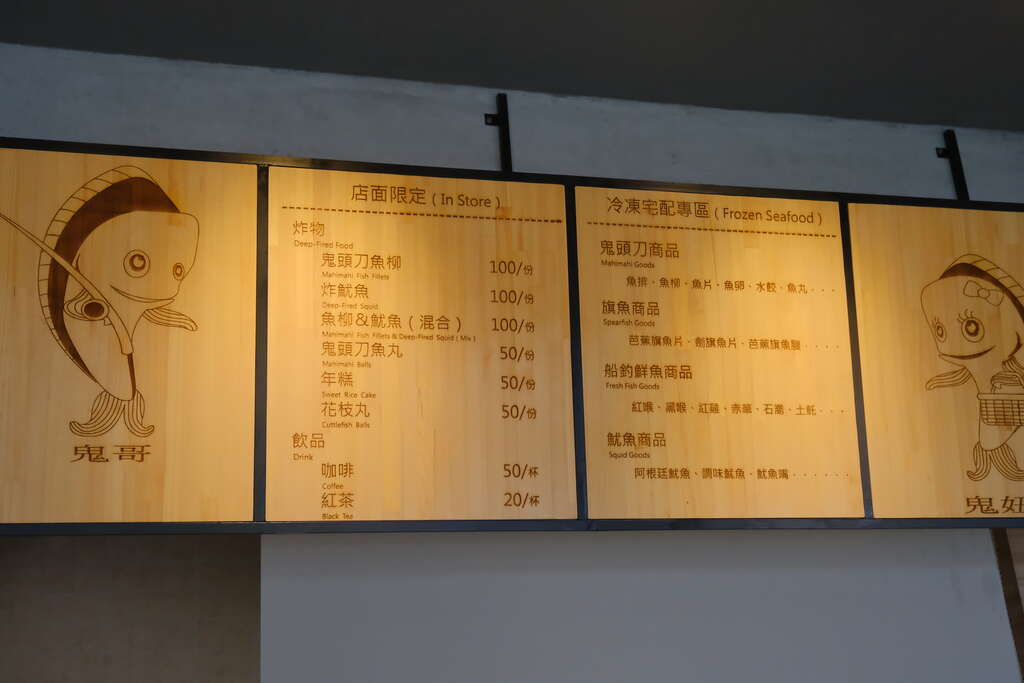 鬼哥
店面限定 ( In Store )
炸物
Deep-Fired Food
鬼頭刀魚柳 100/份
Mahimahi Fish Fillets
炸魷魚 100/份
Deep-Fired Squid
魚柳&魷魚 ( 混合 ) 100/份
Mahimahi Fish Fillets & Deep-Fired Squid ( Mix )
鬼頭刀魚丸 50/份
Mahimahi Balls
年糕 50/份
Sweet Rice Cake
花枝丸 50/份
Cuttlefish Balls
飲品
Drink
咖啡 50/杯
Coffee
紅茶 20/杯
Black Tea
冷凍宅配專區 ( Frozen Seafood )
鬼頭刀商品
Mahimahi Goods
魚排、魚柳、魚片、魚卵、水餃、魚丸‧‧‧‧
旗魚商品
Spearfish Goods
芭蕉旗魚片、劍旗魚片、芭蕉旗魚腿‧‧‧‧
船釣鮮魚商品
Fresh Fish Goods
紅喉、黑喉、紅雞、赤筆、石潮、土魠‧‧‧
魷魚商品
Squid Goods
阿根廷魷魚、調味魷魚、魷魚嘴‧‧‧‧‧‧
鬼妞